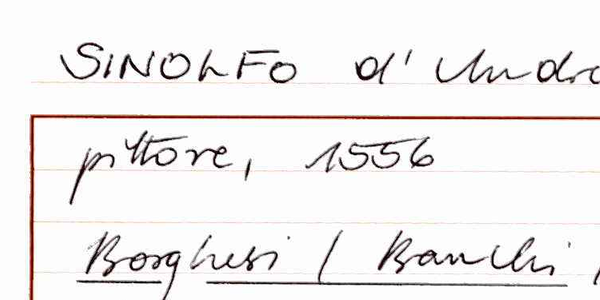 SINOLFO d'Andre
pittore, 1556
Borghesi / Banchi